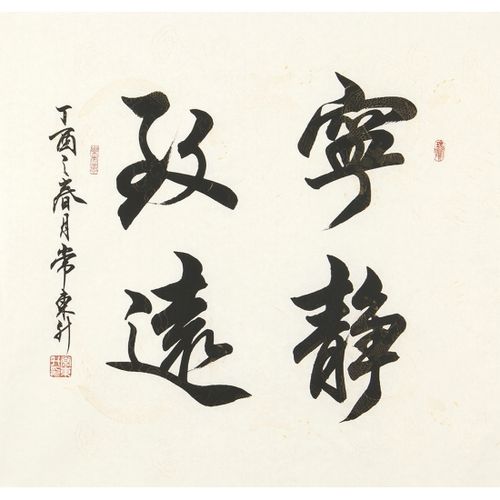 寧靜
致遠
丁酉之春月常東升